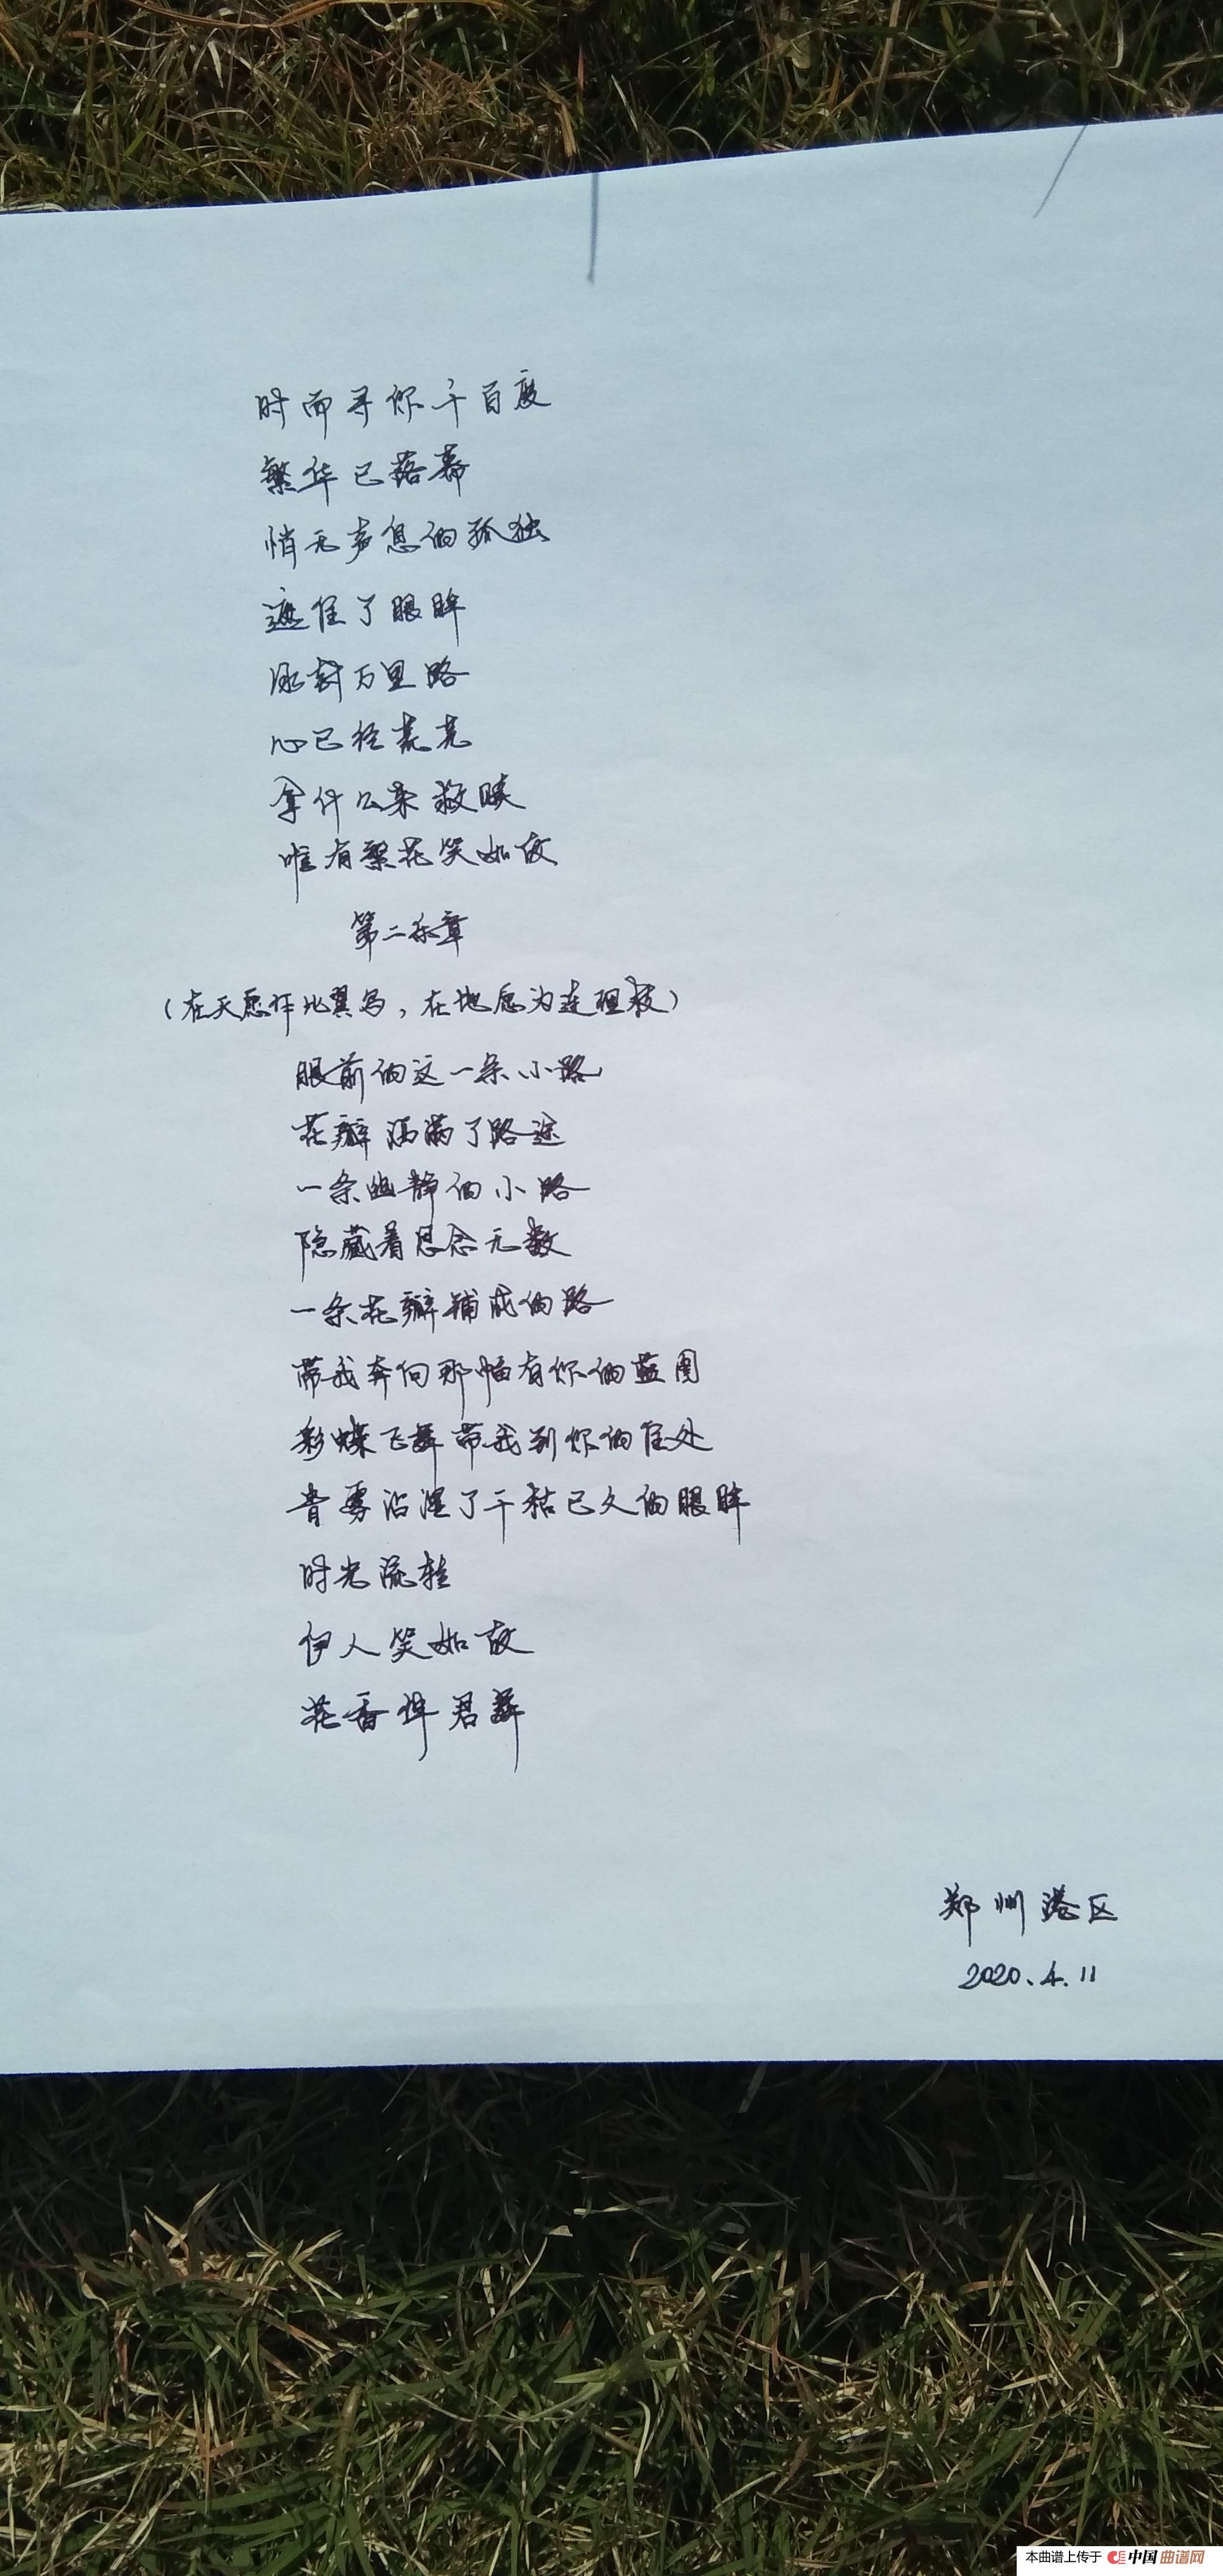 时而寻你千百度
繁华已落幕
悄无声息的孤独
遮住了眼眸
冰封万里路
心已经荒芜
拿什么来救赎
唯有繁花笑如故
第二乐章
(在天愿作比翼鸟,在地愿为连理枝)
眼前的这一条小路
花瓣洒满了路途
一条幽静的小路
隐藏着思念无数
一条花瓣铺成的路
带我奔向那幅有你的蓝图
彩蝶飞舞带我到你的住处
青雾沾湿了干枯已久的眼眸
时光流转
伊人笑如故
花香伴君舞
郑州港区
2020.4.11
本曲谱上传于 中国曲谱网